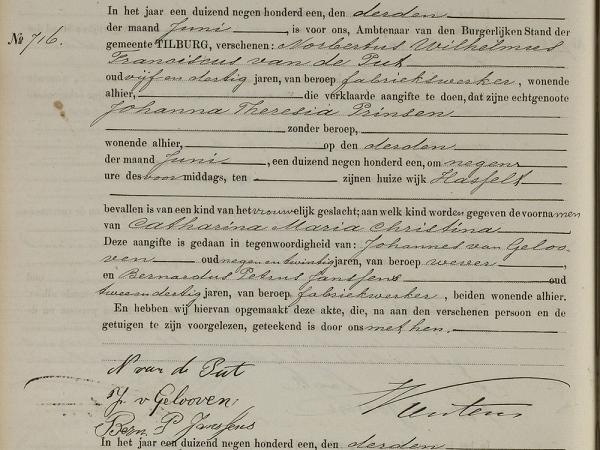 In het jaar een duizend negen honderd een, den derden
der maand Juni, is voor ons, Ambtenaar van den Burgerlijken Stand der
№ 716.
gemeente TILBURG, verschenen: Norbertus Wilhelmus
Franciscus van de Put
oud vijf en dertig jaren, van beroep fabriekswerker, wonende
alhier, die verklaarde aangifte te doen, dat zijne echtgenoote
Johanna Theresia Prinsen
zonder beroep,
wonende alhier, op den derden
der maand Juni, een duizend negen honderd een, om negen
ure des voormiddags, ten zijnen huize wijk Hasselt
bevallen is van een kind van het vrouwelijk geslacht; aan welk kind worden gegeven de voornamen
van Catharina Maria Christina
Deze aangifte is gedaan in tegenwoordigheid van: Johannes van Geloo-
ven oud negen en twintig jaren, van beroep wever,
en Bernardus Petrus Janssens oud
twee en dertig jaren, van beroep fabriekwerker, beiden wonende alhier.
En hebben wij hiervan opgemaakt deze akte, die, na aan den verschenen persoon en de
getuigen te zijn voorgelezen, geteekend is door ons met hen.
N van de Put
J. v Gelooven
Bern. P Janssens
In het jaar een duizend negen honderd een, den derden